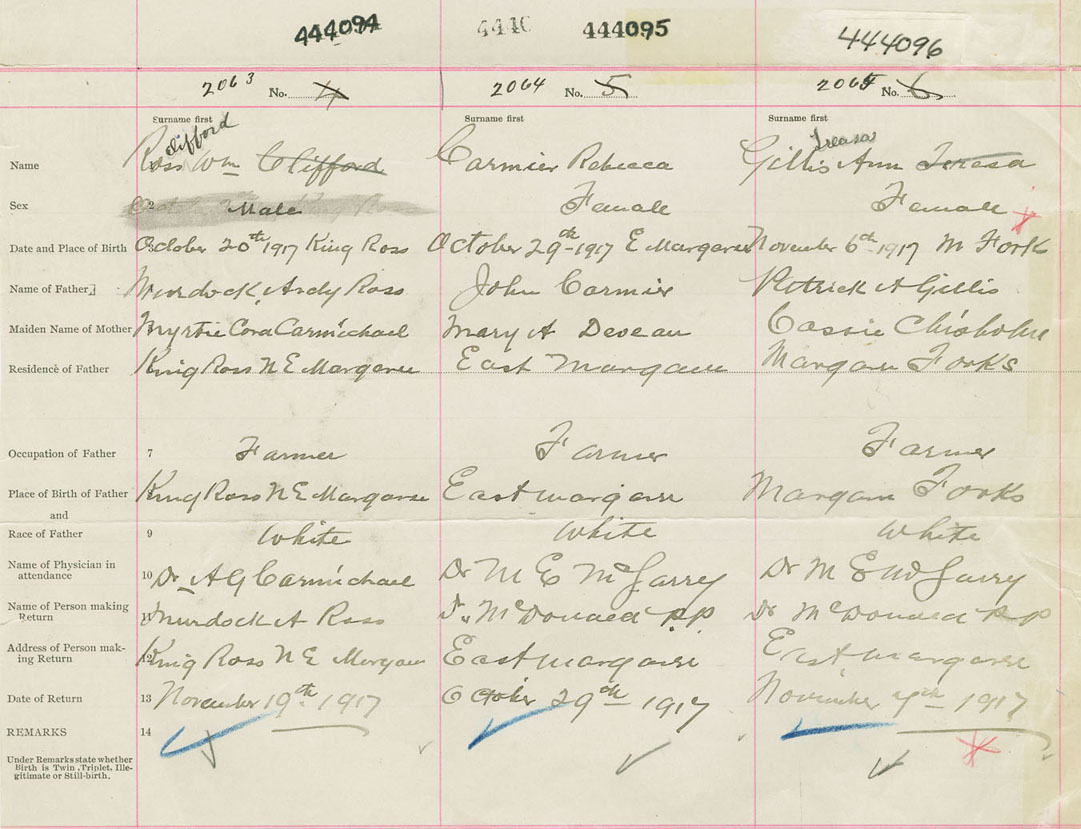 444094 4440 444095 444096
2063 No. 4 2064 No. 5 2065 No. 6
Surname first Surname first Surname first
Clifford Treasa
Name Ross Wm Clifford Cormier Rebecca Gillis Ann Teresa
Sex 2 Male Female Female
Date and Place of Birth October 20th 1917 King Ross October 29th 1917 E Margaree November 6th 1917 M Fork
Name of Father Murdock Andy Ross John Cormier Patrick A Gillis
Maiden Name of Mother Myrtie Cora Carmichael Mary A Deveau Cassie Chisholm
Residence of Father King Ross N E Margaree East Margaree Margaree Forks
Occupation of Father 7 Farmer Farmer Farmer
Place of Birth of Father King Ross N E Margaree East margaree Margaree Forks
and
Race of Father 9 White White White
Name of Physician in
attendance 10 Dr A G Carmichael Dr M E McGarry Dr M E McGarry
Name of Person making
Return 11 Murdock A Ross McDonald P.P. McDonald P P
Address of Person mak-
ing Return 12 King Ross N E Margaree East margaree East margaree
Date of Return 13 November 19th 1917 October 29th 1917 November 1917
REMARKS 14
Under Remarks state whether
Birth is Twin, Triplet, Ille-
gitimate or Still-birth.